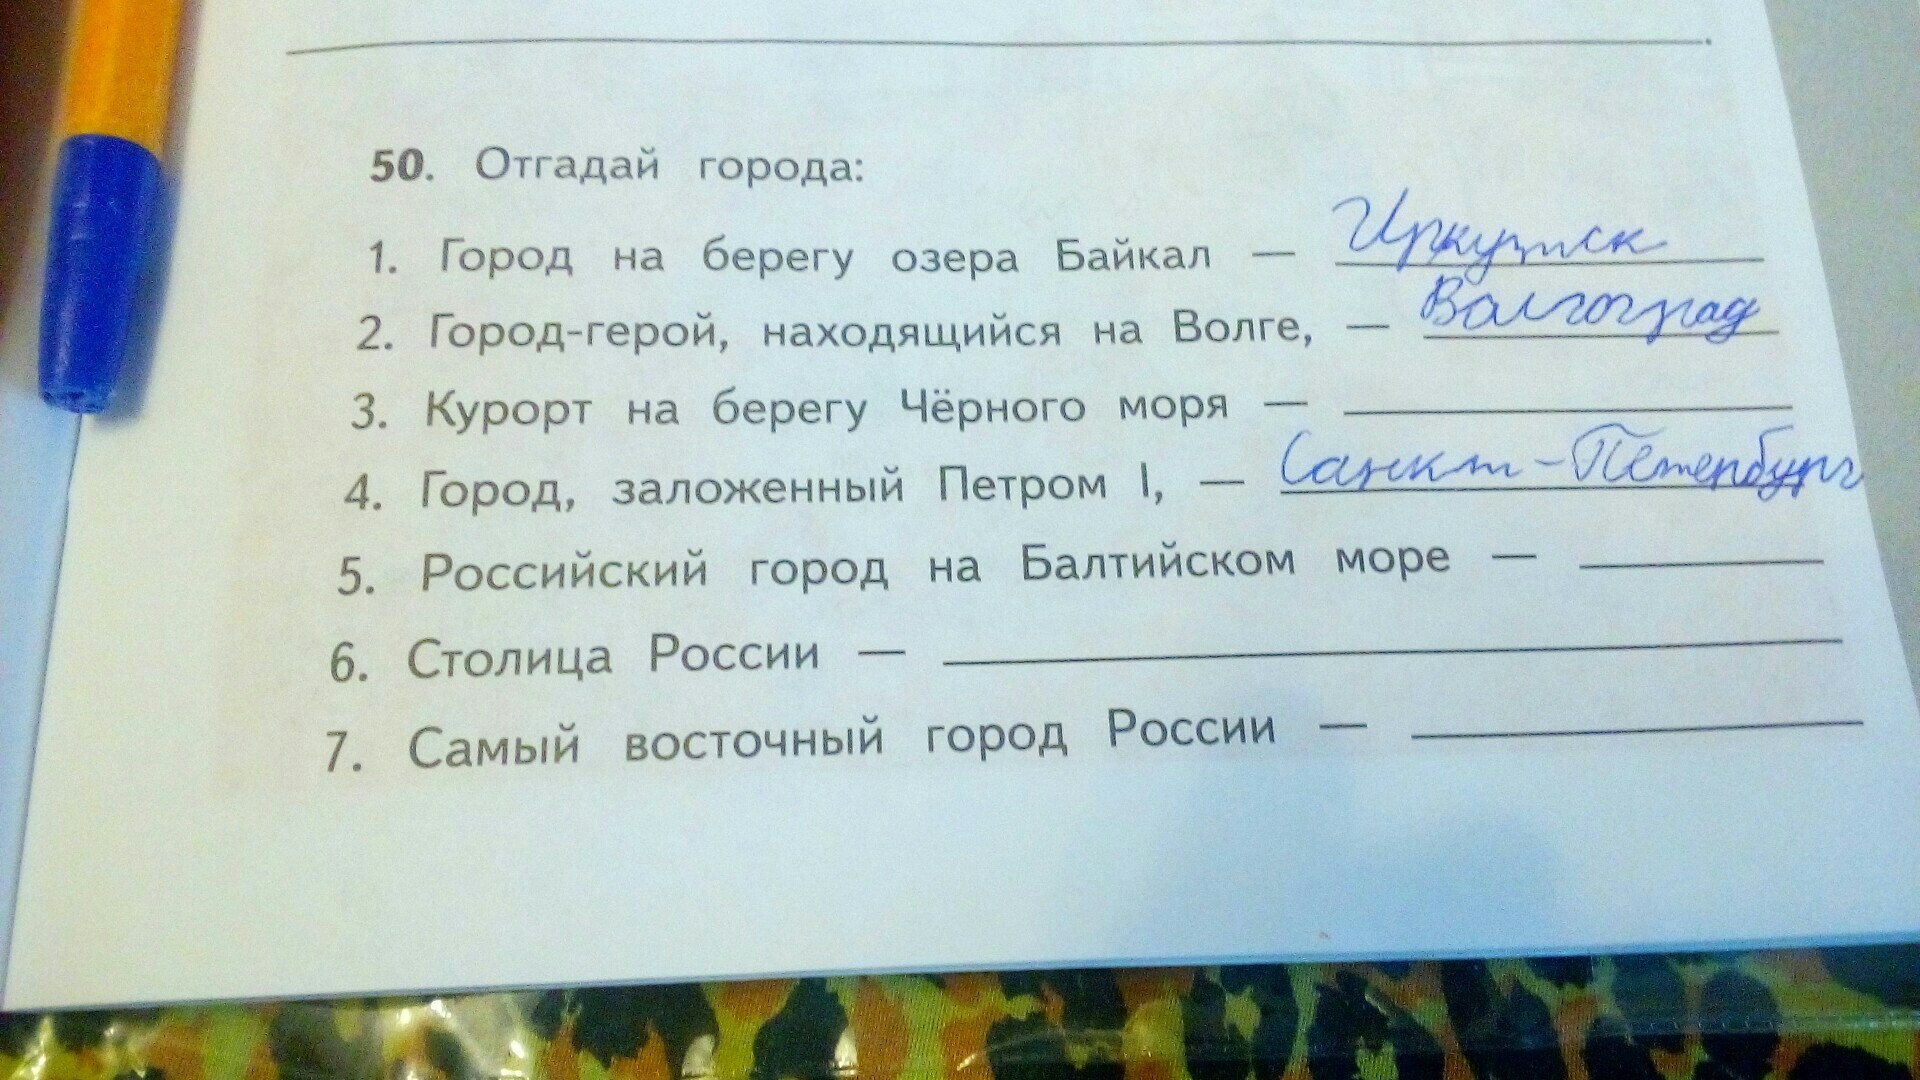 50. Отгадай города:
1. Город на берегу озера Байкал — Иркутск
2. Город-герой, находящийся на Волге, — Волгоград
3. Курорт на берегу Чёрного моря —
4. Город, заложенный Петром I, — Санкт-Петербург
5. Российский город на Балтийском море —
6. Столица России —
7. Самый восточный город России —